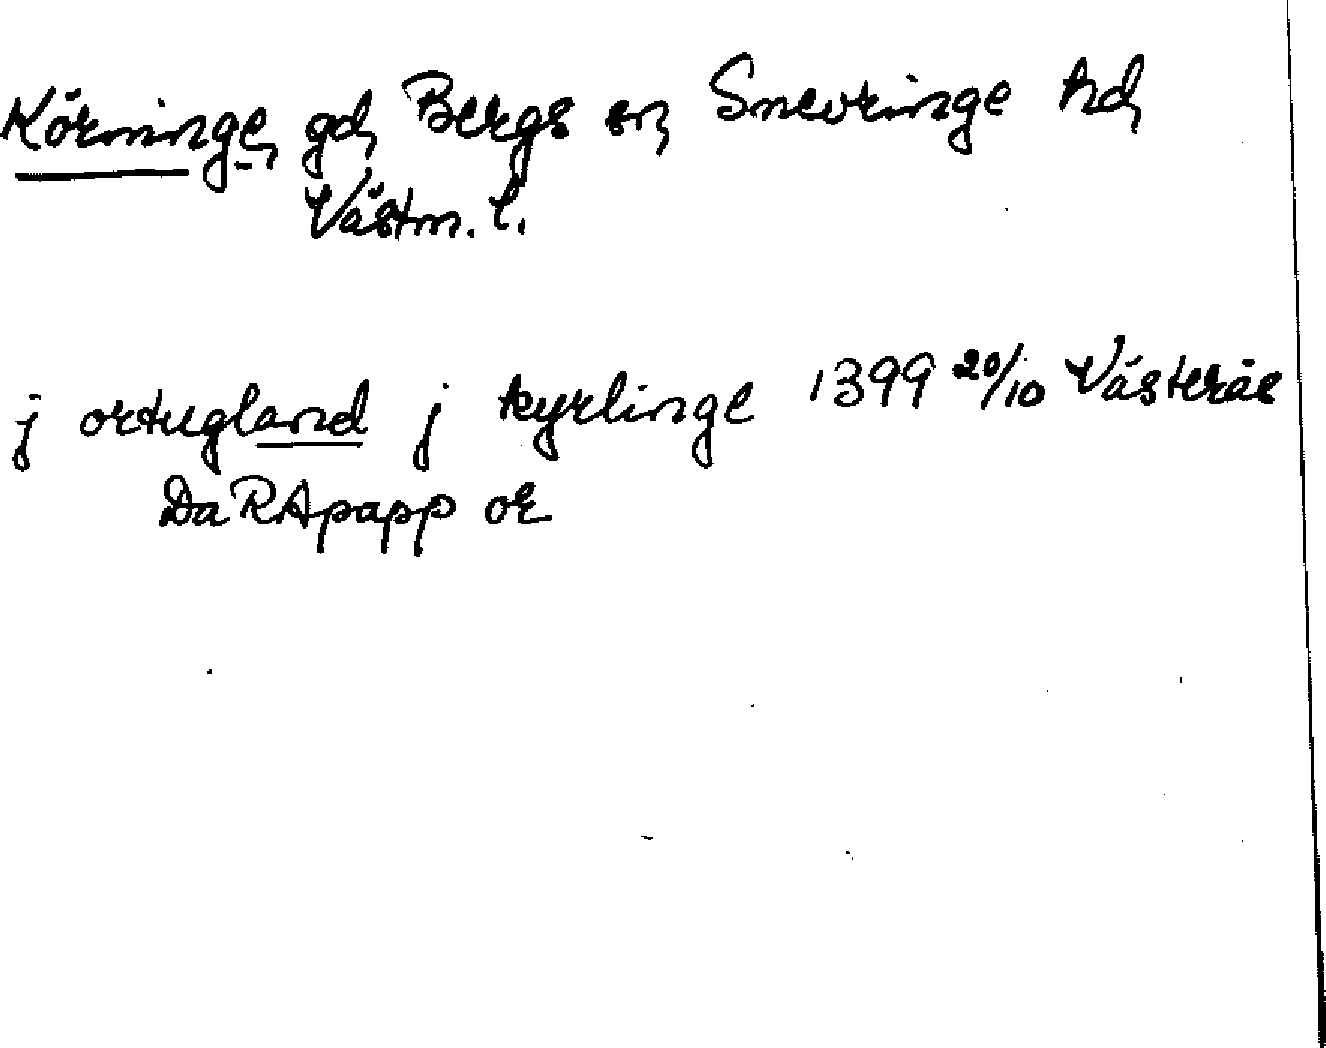 Körninge, gd, Bergs sn, Snevringe hd,
Västm. l.
j ortugland j kyrlinge 1399 20/10 Västerås
Da RApapp or